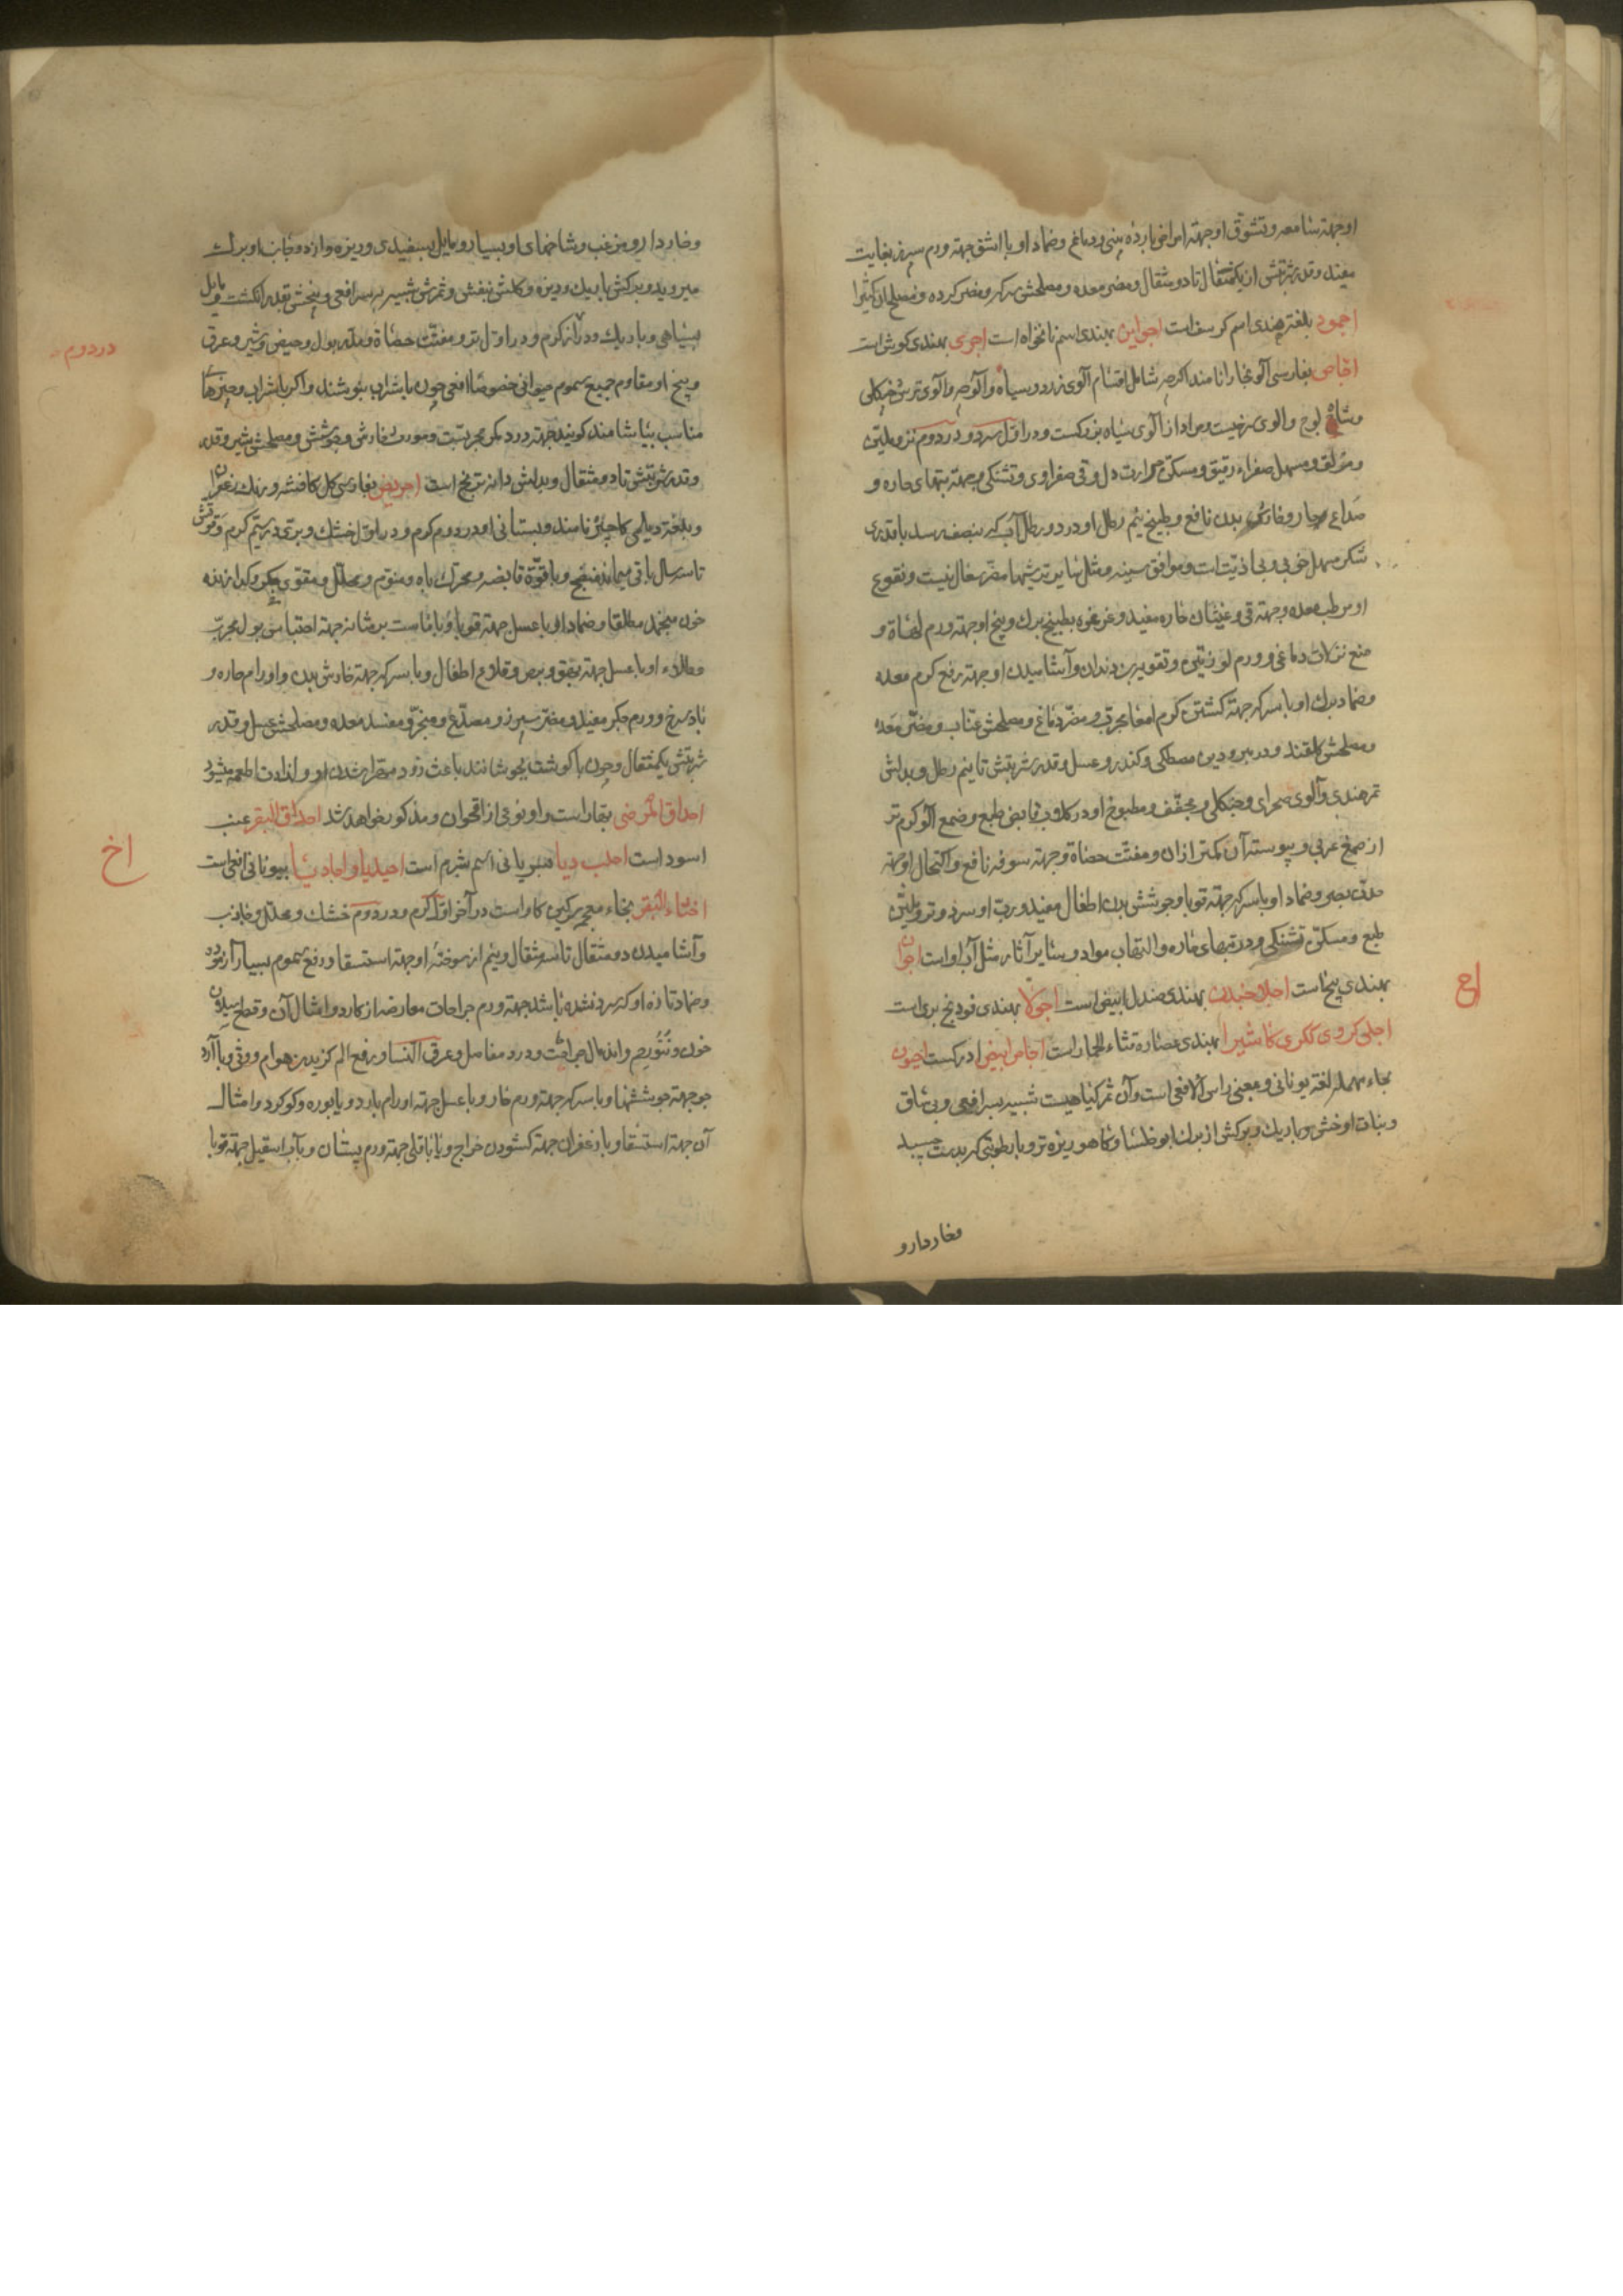 او جهته شامعه و تشوّق او جهته امراض بارده بینی و دماغ و ضماد او با اشق جهته ورم سپرز بغایت
مفید و قدر شربتش از یکمثقال تا دو مثقال و مضر معده و مصلحش سرکه و مضر کرده و مصلح ان کثیرا
اجمود بلغة هندی اسم کرسف است اجواین بهندی اسم نانخواه است اجری بهندی کوش است
اجّاص بفارسی آلو بخارا نامند اکرچه شامل اقسام آلوی زرد و سیاه و آلوچه و آلوی ترش جنکلی
و شاه لوج و الوی سرخیست و مراد از آلوی سیاه بزرکست و در اوّل سرد و در دوم تر و ملیّن
و مزلق و مسهل صفراء رقیق و مسکّن حرارت دل و قی صفراوی و تشنکی و جهته تبهای حاره و
صداع حار و خارش بدن نافع و طبیخ نیم رطل او در دو رطل آب که بنصف رسد با قدری
شکر مسهل خوبی و بی اذیّت است و موافق سینه و مثل سایر ترشیها مضر سعال نیست و نقوع
او مرطب معده و جهته قی و غثیان حاره مفید و غرغره بطبیخ برك و بیخ او جهته ورم لهاة و
منع نزلات دماغی و ورم لوزتین و تقویه بن دندان و آشامیدن او جهته رفع کرم معده
و ضماد برك او با سرکه جهته کشتن کرم امعا مجرب و مضرّ دماغ و مصلحش عنّاب و مضر معده
و مصلحش کلقند و در مبرودین مصطکی و کندر و عسل و قدر شربتش تا نیم رطل و بدلش
تمر هندی و آلوی صحرای و جنکلی و مجفّف و مطبوخ او در کلاب قابض طبع و صمغ آلو کرم تر
از صمغ عربی و پیوسته آن کمتر ازان و مفتّت حصاة و جهته سرفه نافع و اکتحال او جهته
حدت بصر و ضماد او با سرکه جهته قوبا و جوشش بدن اطفال مفید و رب او سرد و تر و ملیّن
طبع و مسکّن تشنکی و در تبهای حاره و التهاب مواد و سایر آثار مثل آب او است اجوان
بهندی بنج است اجلا چندن بهندی صندل ابیض است اجولا بهندی فودنج بری است
اجلی کروی ککری کا شیرا بهندی عصاره قثاء الحمار است اجاص ابیض ادرکست احیون
بحاء مهمله لغة یونانی و معنی راس الافعی است و آن ثمر کیاهیست شبیه بسر افعی و بی ساق
و نبات او خشن و باریك و برکش از برك ابو خلسا و کاهو ریزه تر و با رطوبتی که بدست چسبد
و خاردار
اج
و خاردار و مزغب و شاخهای او بسیار و مایل بسفیدی و ریزه و از دو جانب او برك
میروید و برکش باریك و ریزه و کلش بنفش و ثمرش شبیه بسر افعی و بیخش بقدر انکشت و مایل
بسیاهی و باریك و در آنها کرم و در اوّل تر و مفتّت حصاة و مدر بول و حیض و شیر و عرق
و بیخ او مقاوم جمیع سموم حیوانی خصوصا افعی چون با شراب بنوشند و اکر با شراب و چیزهای
مناسب بیاشامند کویند جهته درد کمر مجربست و مورث خارش و جوشش و مصلحش شیر و قدر
و قدر شربتش تا دو مثقال و بدلش دانه ترنج است احریض بفارسی کل کافشه و برنك زعفران
و بلغة دیلمی کاجیلو نامند و بستانی او در دوم کرم و در اوّل خشك و برّی در سیّم کرم و قوتش
تا سه سال باقی میماند منضج و با قوّة قابضه و محرك باه و منوّم و محلل و مقوی جکر و کدازنده
خون منجمد مطلقا و ضماد او با عسل جهته قوبا و با ماست بر مثانه جهته احتباس بول مجرب
و طلاء او با عسل جهته بهق و برص و قلاع اطفال و با سرکه جهته خارش بدن و اورام حاره و
باد سرخ و ورم جکر مفید و مضر سپرز و مصدّع و مبخر و مفسد معده و مصلحش عسل و قدر
شربتش یکمثقال و چون با کوشت بجوشانند باعث زود مهرا شدن او و لذادت اطعمه میشود
احداق المرضی بهار است و او نوعی از اقحوان و مذکور خواهد شد احداق البقر عنب
اسود است احلب دیا بسریانی اسم شبرم است احیدیا و احادیثا بیونانی افعی است
اخثاء البقر بخاء معجمه سرکین کاو است در آخر اوّل کرم و در دوم خشك و محلل و جاذب
و آشامیدن دو مثقال تا سه مثقال و نیم از سوخته او جهته استسقا و دفع سموم بسیار آزموده
و ضماد تازه او که سرد نشده باشد جهته ورم جراحات معارضه از کارد و امثال آن و قطع سیلان
خون و اندمال جراحت و درد مفاصل و عرق النسا و رفع الم کزیدن هوام و و با آرد
جو جهته جوششها و با سرکه جهته ورم حار و با عسل جهته اورام بارد و با بوره و کوکرد و امثال
آن جهته استسقا و با زعفران جهته کشودن خراج و با باقلی جهته ورم پستان و با آب اسقیل جهته قوبا
در دوم
اخ